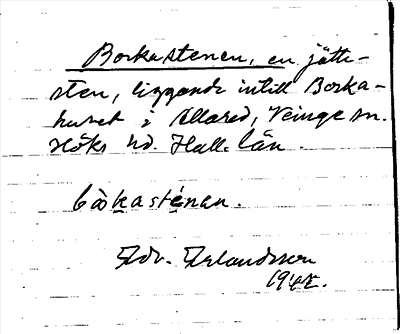 Borkastenen, en jätte-
sten, liggande intill Borka-
huset i Allared, Veinge sn.
Höks hd. Hall. län.
Edv. Erlandsson